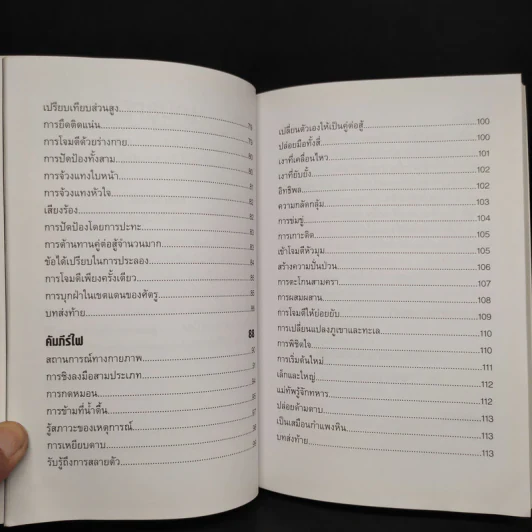 เปรียบเทียบส่วนสูง
การยึดติดแน่น 79
การโจมตีด้วยร่างกาย 79
การปัดป้องทั้งสาม 80
การจ้วงแทงใบหน้า 80
การจ้วงแทงหัวใจ 81
เสียงร้อง 82
การปัดป้องโดยการปะทะ 82
การต้านทานคู่ต่อสู้จำนวนมาก 83
ข้อได้เปรียบในการประลอง 84
การโจมตีเพียงครั้งเดียว
การบุกฝ่าในเขตแดนของศัตรู
บทส่งท้าย
คัมภีร์ไฟ 88
สถานการณ์ทางกายภาพ
การชิงลงมือสามประเภท
การกดหมอน
การข้ามที่น้ำตื้น
รู้สภาวะของเหตุการณ์
การเหยียบดาบ
รับรู้ถึงการสลายตัว
เปลี่ยนตัวเองให้เป็นคู่ต่อสู้ 100
ปล่อยมือทั้งสี่ 100
เงาที่เคลื่อนไหว 101
เงาที่ยับยั้ง 102
อิทธิพล 102
ความกลัดกลุ้ม 103
การข่มขู่ 104
การเกาะติด 105
เข้าโจมตีหัวมุม 105
สร้างความปั่นป่วน 106
การตะโกนสามครา 107
การผสมผสาน 108
การโจมตีให้ย่อยยับ 109
การเปลี่ยนแปลงภูเขาและทะเล 110
การพิชิตใจ 110
การเริ่มต้นใหม่ 111
เล็กและใหญ่ 112
แม่ทัพรู้จักทหาร 112
ปล่อยด้ามดาบ 113
เป็นเสมือนกำแพงหิน 113
บทส่งท้าย 113